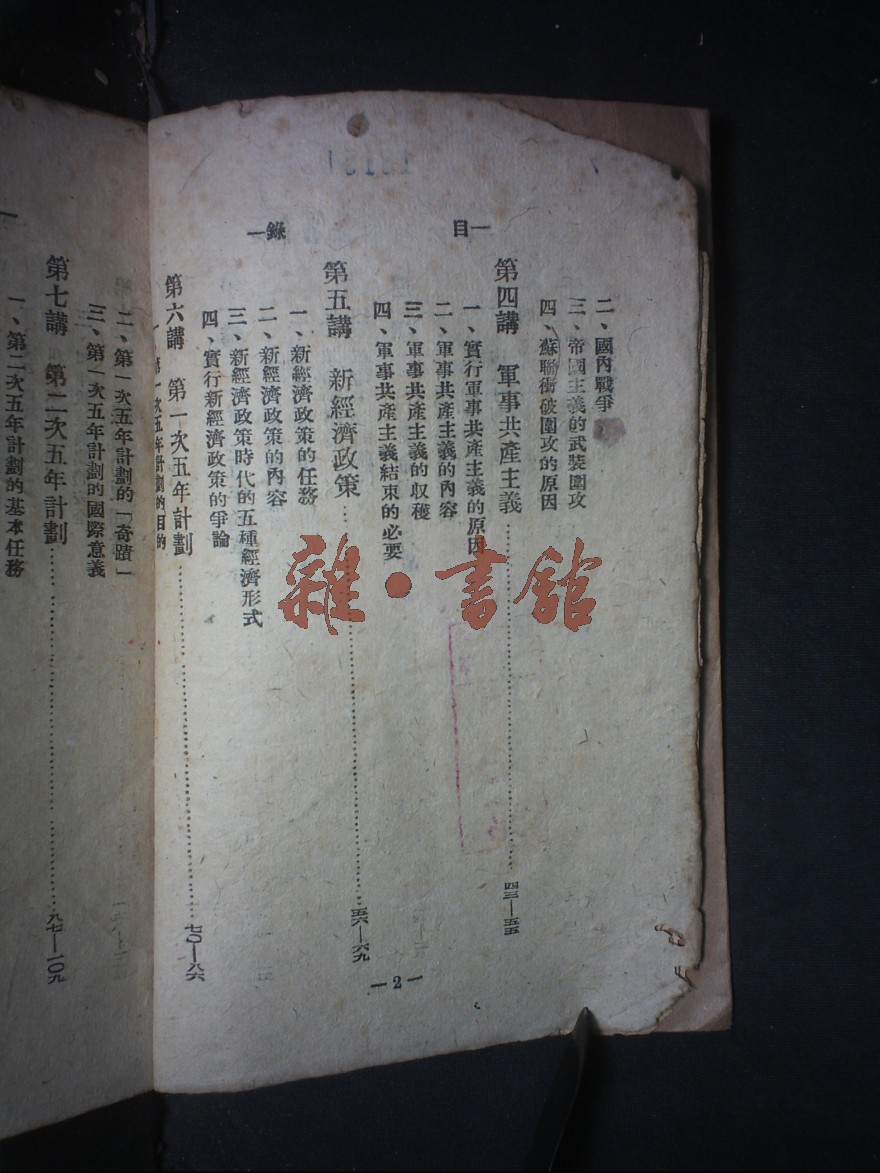 目一
一錄
二、國內戰爭
三、帝國主義的武裝圍攻
四、蘇聯衝破圍攻的原因
第四講 軍事共產主義……四三—五五
一、實行軍事共產主義的原因
二、軍事共產主義的內容
三、軍事共產主義的收穫
四、軍事共產主義結束的必要
第五講 新經濟政策……五六—六九
一、新經濟政策的任務
二、新經濟政策的內容
三、新經濟政策時代的五種經濟形式
四、實行新經濟政策的爭論
第六講 第一次五年計劃……七〇—八六
一、第一次五年計劃的目的
—2—
二、第一次五年計劃的「奇蹟」
三、第一次五年計劃的國際意義
第七講 第二次五年計劃……八七—一〇九
一、第二次五年計劃的基本任務
雜·書館